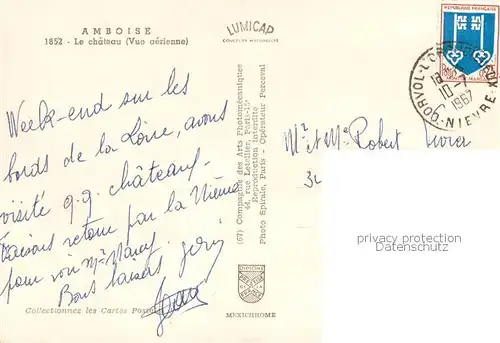 AMBOISE
1852 - Le château (Vue aérienne)
LUMICAP
COULEURS NATURELLES
REPUBLIQUE FRANÇAISE
CORVOL-L'ORG
10-7
1967
NIEVRE
Week-end sur les
bords de la Loire, avons
visité q.q. château.
Faisons retour par la Nièvre
pour voir Mr
Bons baisers.
Mr et Me Robert
(67) Compagnie des Arts Photomécaniques
44, rue Letellier, Paris-15e
Reproduction Interdite
Photo Spirale, Paris - Opérateur Perceval
privacy protection
watermark
Collectionnez les Cartes Postales
MEXICHROME